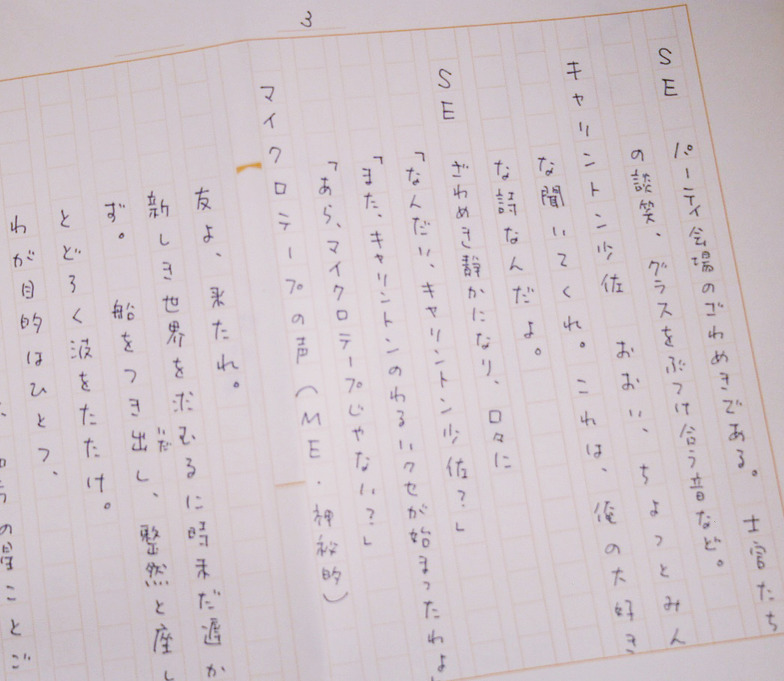 3
SE パーティ会場のざわめきである。士官たち
の談笑、グラスをぶつけ合う音など。
キャリントン少佐 おおい、ちょっとみん
な聞いてくれ。これは、俺の大好き
な詩なんだよ。
SE ざわめき静かになり、口々に
「なんだい、キャリントン少佐?」
「また、キャリントンのわるいクセが始まったわよ
「あら、マイクロテープじゃない?」
マイクロテープの声(ME・神秘的)
友よ、来たれ。
新しき世界を求むるに時未だ遅か
ず。船をつき出だし、整然と座し
とどろく波をたたけ。
わが目的はひとつ、
の星ことご